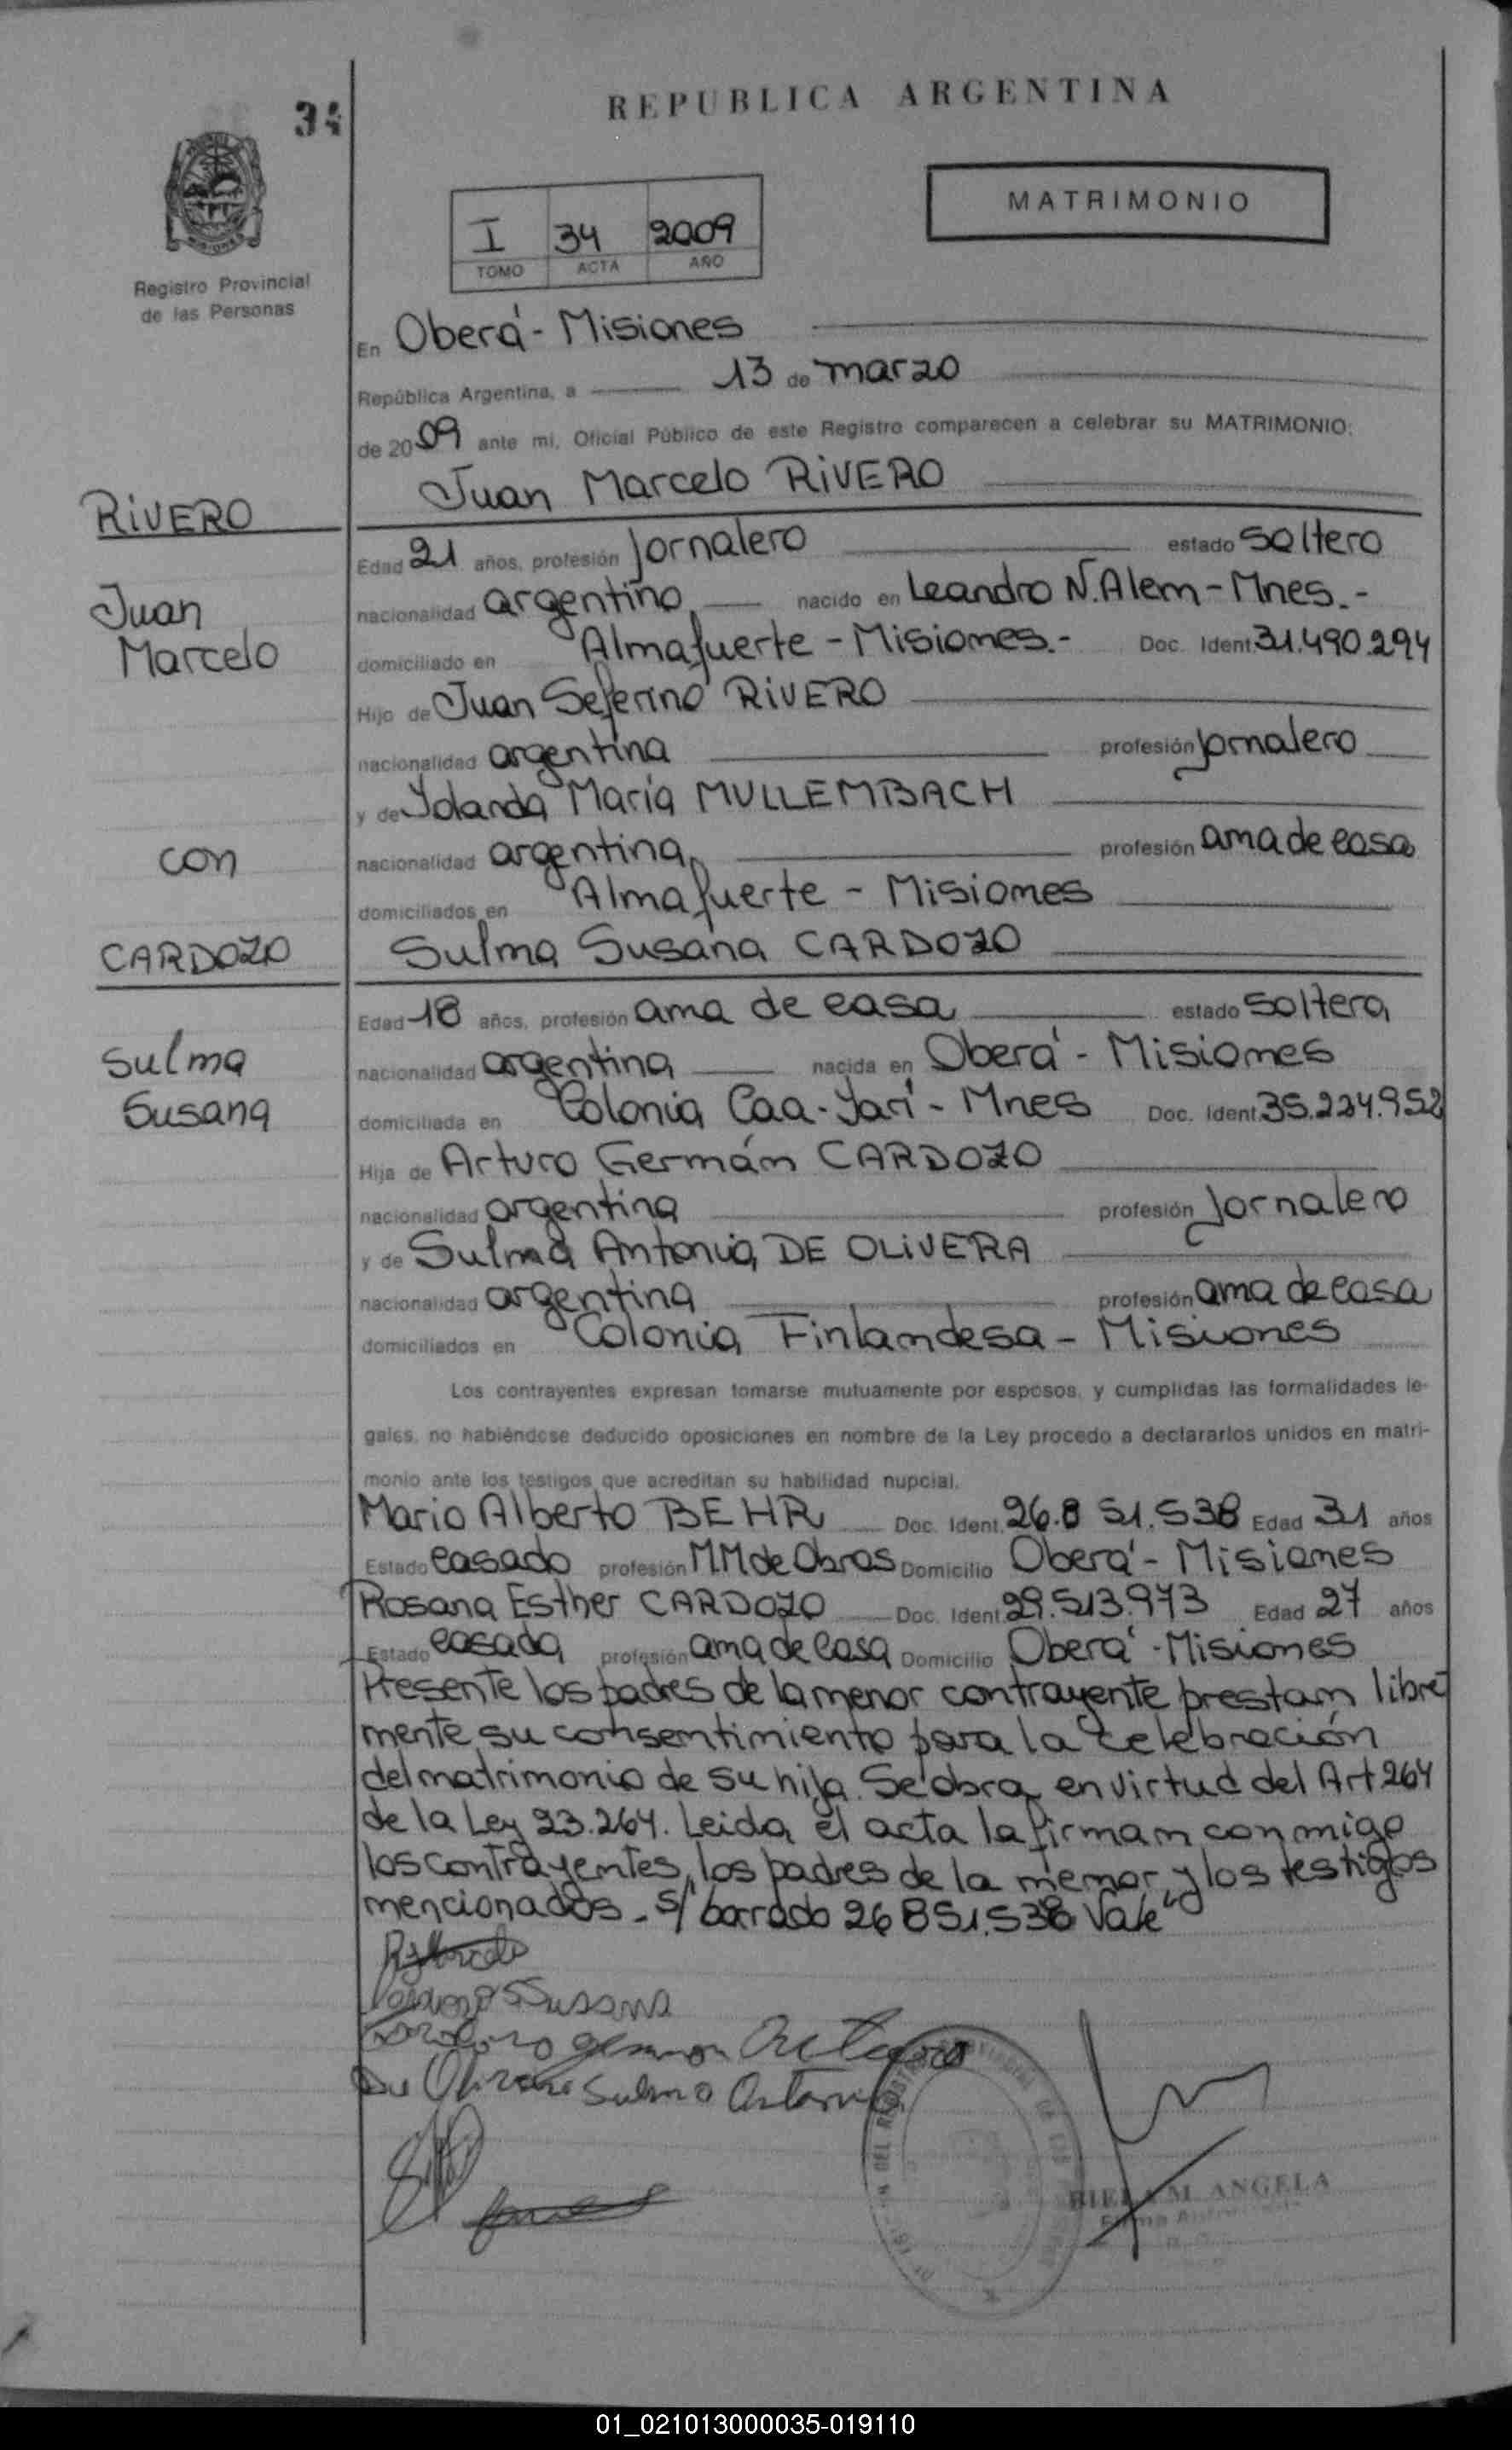 REPUBLICA ARGENTINA
34
MATRIMONIO
I 34 2009
TOMO ACTA AÑO
Registro Provincial
de las Personas
En Oberá - Misiones
República Argentina, a 13 de marzo
de 2009 ante mi, Oficial Público de este Registro comparecen a celebrar su MATRIMONIO:
Juan Marcelo RIVERO
RIVERO
Edad 21 años, profesión jornalero estado soltero
Juan
nacionalidad argentino nacido en Leandro N. Alem - Mnes.-
Marcelo
domiciliado en Almafuerte - Misiones.- Doc. Ident. 31.490.294
Hijo de Juan Seferino RIVERO
nacionalidad argentina profesión jornalero
y de Yolanda María MULLEMBACH
con
nacionalidad argentina profesión ama de casa
domiciliados en Almafuerte - Misiones
CARDOZO
Sulma Susana CARDOZO
Edad 18 años, profesión ama de casa estado soltera
Sulma
nacionalidad argentina nacida en Oberá - Misiones
Susana
domiciliada en Colonia Caa-Yarí - Mnes Doc. Ident. 35.224.952
Hija de Arturo Germán CARDOZO
nacionalidad argentina profesión jornalero
y de Sulma Antonia DE OLIVERA
nacionalidad argentina profesión ama de casa
domiciliados en Colonia Finlandesa - Misiones
Los contrayentes expresan tomarse mutuamente por esposos, y cumplidas las formalidades le-
gales, no habiéndose deducido oposiciones en nombre de la Ley procedo a declararlos unidos en matri-
monio ante los testigos que acreditan su habilidad nupcial.
Mario Alberto BEHR Doc. Ident. 26.851.538 Edad 31 años
Estado casado profesión M.M de Obras Domicilio Oberá - Misiones
Rosana Esther CARDOZO Doc. Ident. 29.513.973 Edad 27 años
Estado casada profesión ama de casa Domicilio Oberá - Misiones
Presente los padres de la menor contrayente prestan libre-
mente su consentimiento para la celebración
del matrimonio de su hija. Se obra en virtud del Art 264
de la Ley 23.264. Leida el acta la firman conmigo
los contrayentes, los padres de la menor y los testigos
mencionados. s/ borrado 26 851.538 Vale"
Susana
Arturo
De Olivera Sulma Antonia
M. ANGELA
01_021013000035-019110